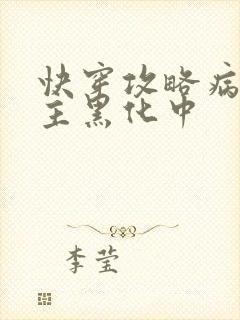 快穿攻略病
主黑化中
李莹